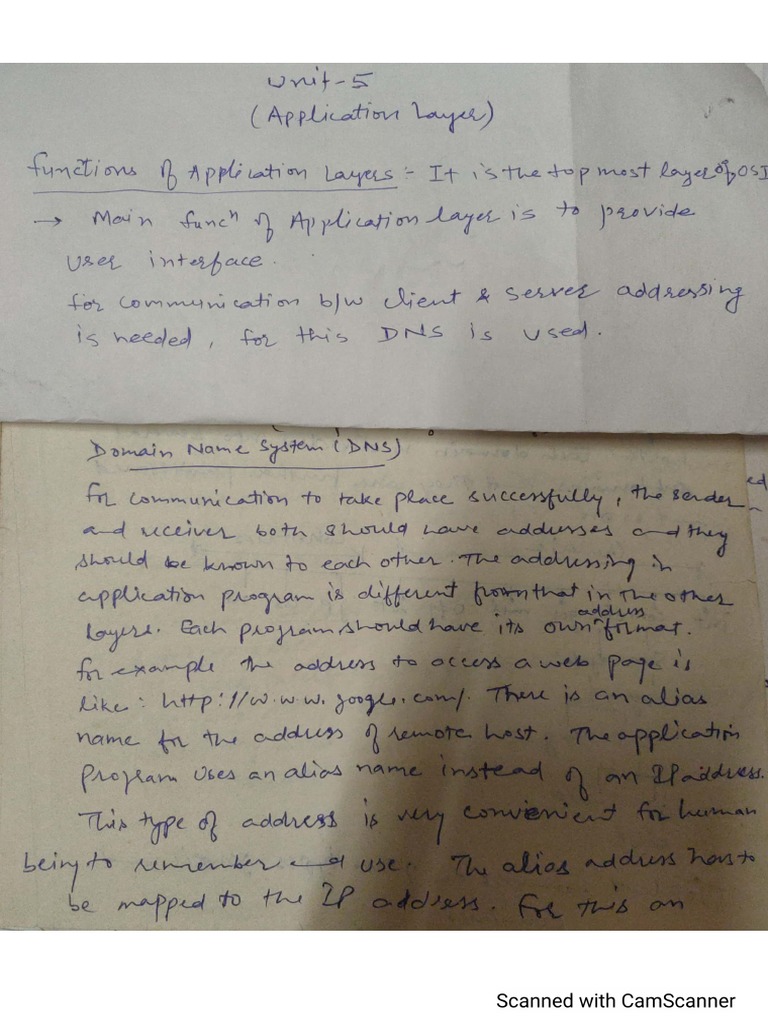 Unit-5
(Application Layer)
Functions of Application Layers:- It is the top most layer of OSI
→ Main funcⁿ of Application layer is to provide
user interface.
for communication b/w client & server addressing
is needed, for this DNS is used.
Domain Name System (DNS)
for communication to take place successfully, the sender
and receiver both should have addresses and they
should be known to each other. The addressing in
application program is different from that in the other
layers. Each program should have its own address format.
for example the address to access a web page is
like: http://w.w.w.google.com/. There is an alias
name for the address of remote host. The application
program uses an alias name instead of an IP address.
This type of address is very convienent for human
being to remember and use. The alias address has to
be mapped to the IP address. For this an
ed
Scanned with CamScanner